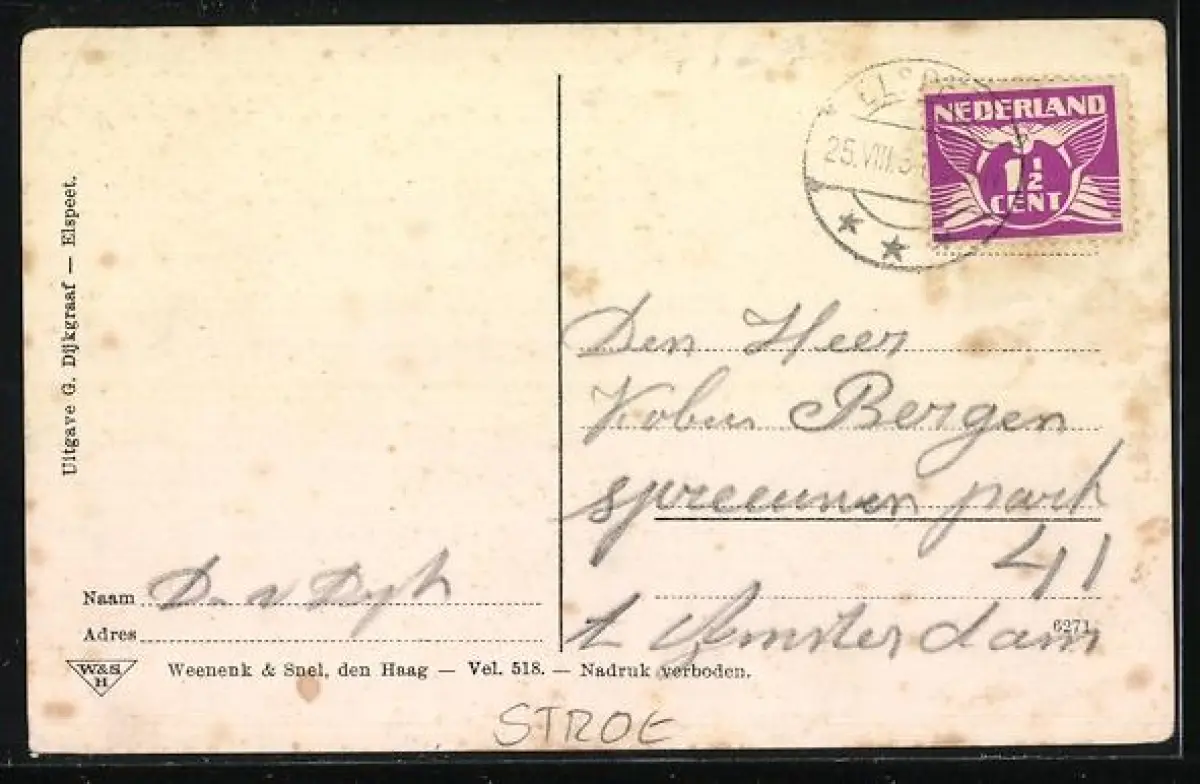 Uitgave G. Dijkgraaf — Elspeet.
25.VIII.3
NEDERLAND
1½
CENT
Den Heer
Kobus Bergen
spreeuwen park
41
t Amsterdam
6271
Naam D v Dyk
Adres
W&S
H
Weenenk & Snel, den Haag — Vel. 518. — Nadruk verboden.
STROE